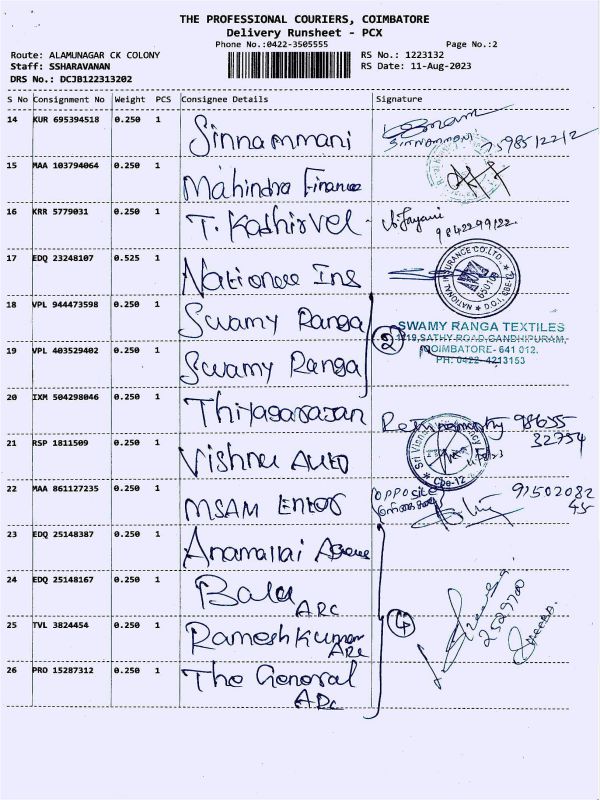 THE PROFESSIONAL COURIERS, COIMBATORE
Delivery Runsheet - PCX
Phone No.:0422-3505555 Page No.:2
Route: ALAMUNAGAR CK COLONY RS No.: 1223132
Staff: SSHARAVANAN RS Date: 11-Aug-2023
DRS No.: DCJB122313202
S No Consignment No Weight PCS Consignee Details Signature
14 KUR 695394518 0.250 1 Sinnammani Sinnammani
15 MAA 103794064 0.250 1 Mahindra Finance
16 KRR 5779031 0.250 1 T. Kathirvel
17 EDQ 23248107 0.525 1 Nationee Ins NATIONAL INSURANCE CO.LTD.,
18 VPL 944473598 0.250 1 Swamy Ranga 2 SWAMY RANGA TEXTILES
1219,SATHY ROAD,GANDHIPURAM,
19 VPL 403529402 0.250 1 Swamy Ranga COIMBATORE- 641 012.
PH: 0422- 4213153
20 IXM 504298046 0.250 1 Thiyagarasan 98655
32754
21 RSP 1811509 0.250 1 Vishnu Auto Cbe-12
22 MAA 861127235 0.250 1 MSAM (opposite 91502082
45
23 EDQ 25148387 0.250 1 Anamallai
24 EDQ 25148167 0.250 1 Bala ARC
25 TVL 3824454 0.250 1 Ramesh Kumar ARC 4
26 PRO 15287312 0.250 1 The General ARC